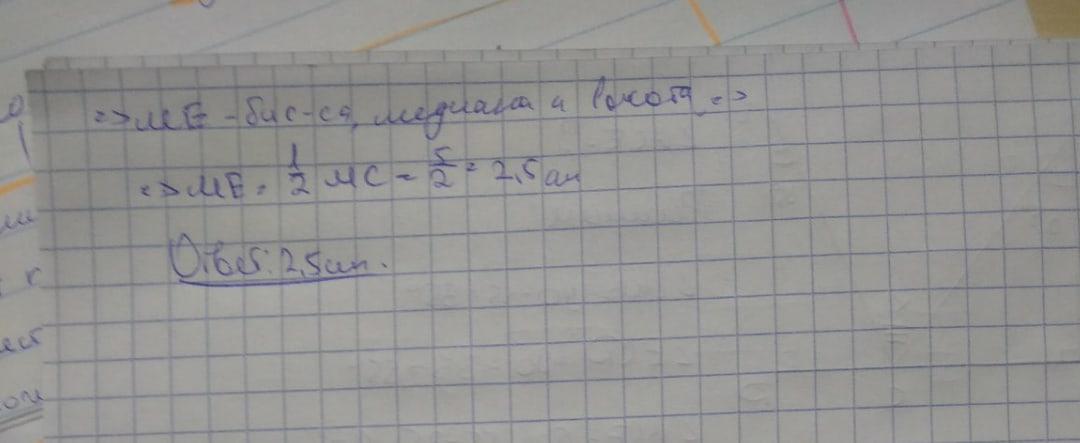 => ME - бис-са, медиана и высота =>
=> ME = 1/2 MC = 5/2 = 2,5 см
Ответ: 2,5 см.